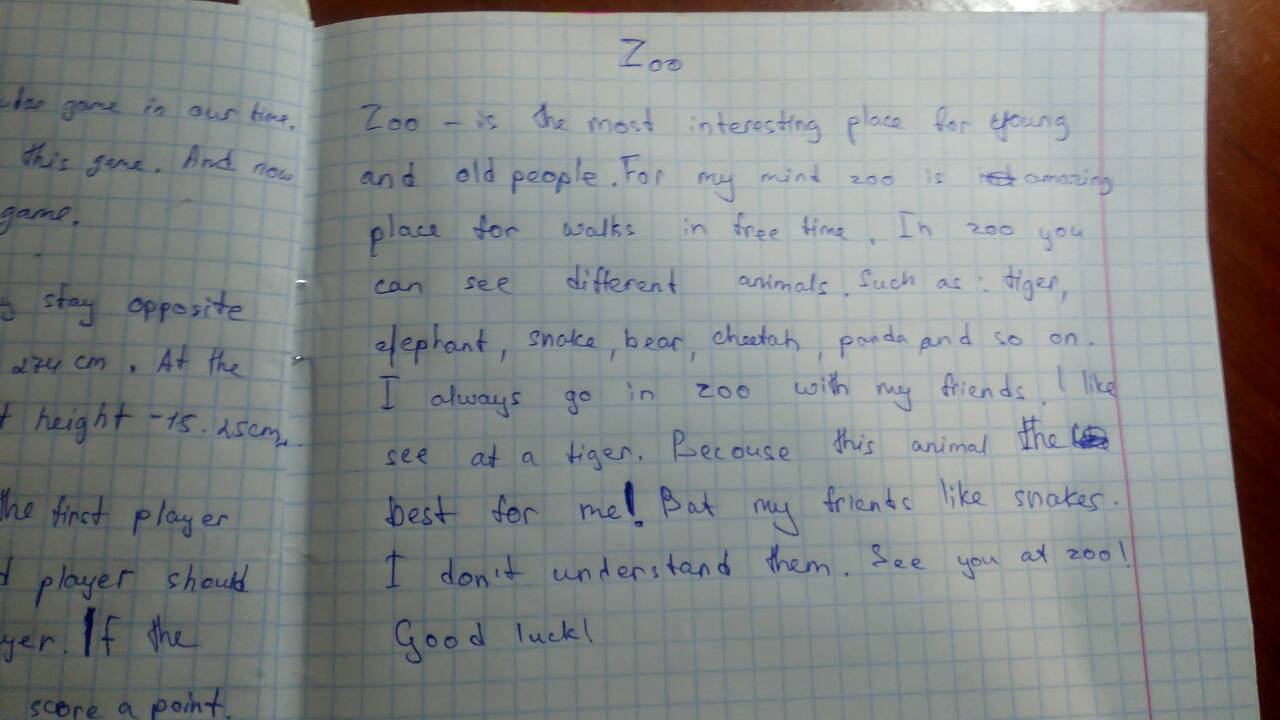 game in our time.
this game. And now
game.
stay opposite
274 cm. At the
height - 15.25cm.
the first player
player should
If the
score a point.
Zoo
Zoo - is the most interesting place for young
and old people. For my mind zoo is amazing
place for walks in free time. In zoo you
can see different animals. Such as: tiger,
elephant, snake, bear, cheetah, panda and so on.
I always go in zoo with my friends. I like
see at a tiger. Becouse this animal the
best for me! Bat my friends like snakes.
I don't understand them. See you at zoo!
Good luck!